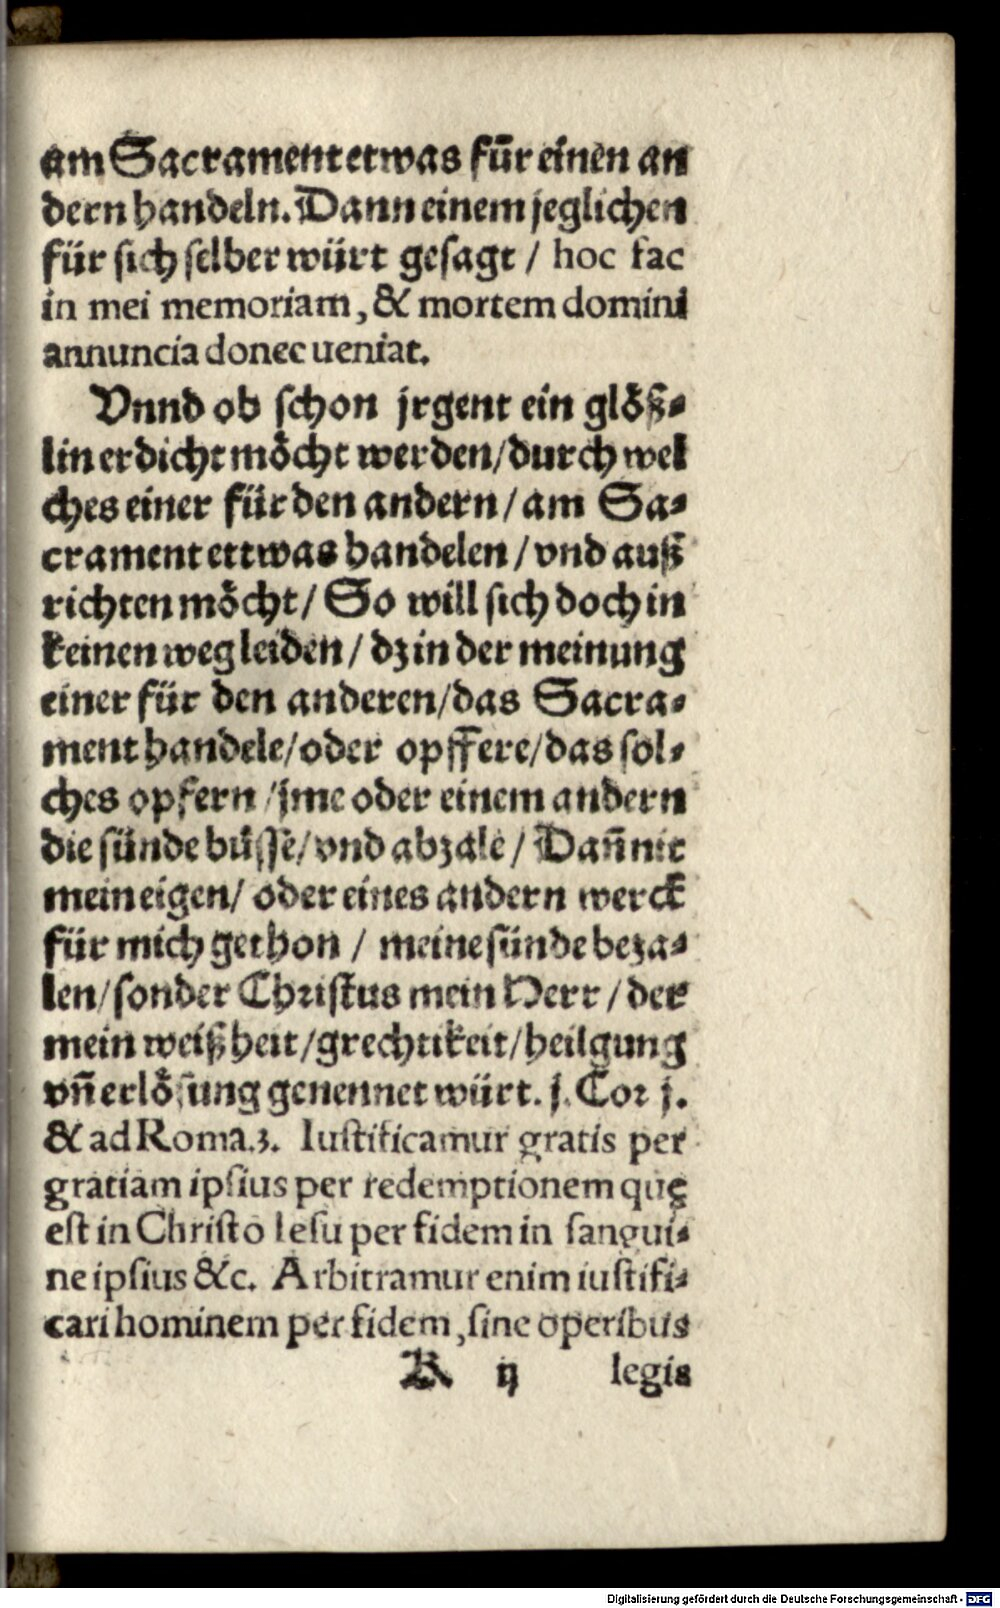 am Sacrament etwas für einen an
dern handeln. Dann einem jeglichen
für sich selber würt gesagt / hoc fac
in mei memoriam, & mortem domini
annuncia donec ueniat.
Vnnd ob schon jrgent ein glöß-
lin erdicht möcht werden / durch wel
ches einer für den andern / am Sa-
crament ettwas handelen / vnd auß
richten möcht / So will sich doch in
keinen weg leiden / dz in der meinung
einer für den anderen / das Sacra-
ment handele / oder opffere / das sol-
ches opfern / jme oder einem andern
die sünde büsse / vnd abzale / Dañ nit
mein eigen / oder eines andern werck
für mich gethon / meine sünde beza-
len / sonder Christus mein Herr / der
mein weißheit / grechtikeit / heilgung
vñ erlösung genennet würt. j. Cor j.
& ad Roma.3. Iustificamur gratis per
gratiam ipsius per redemptionem quę
est in Christo Iesu per fidem in sangui-
ne ipsius &c. Arbitramur enim iustifi-
cari hominem per fidem, sine operibus
K ij legis
Digitalisierung gefördert durch die Deutsche Forschungsgemeinschaft - DFG